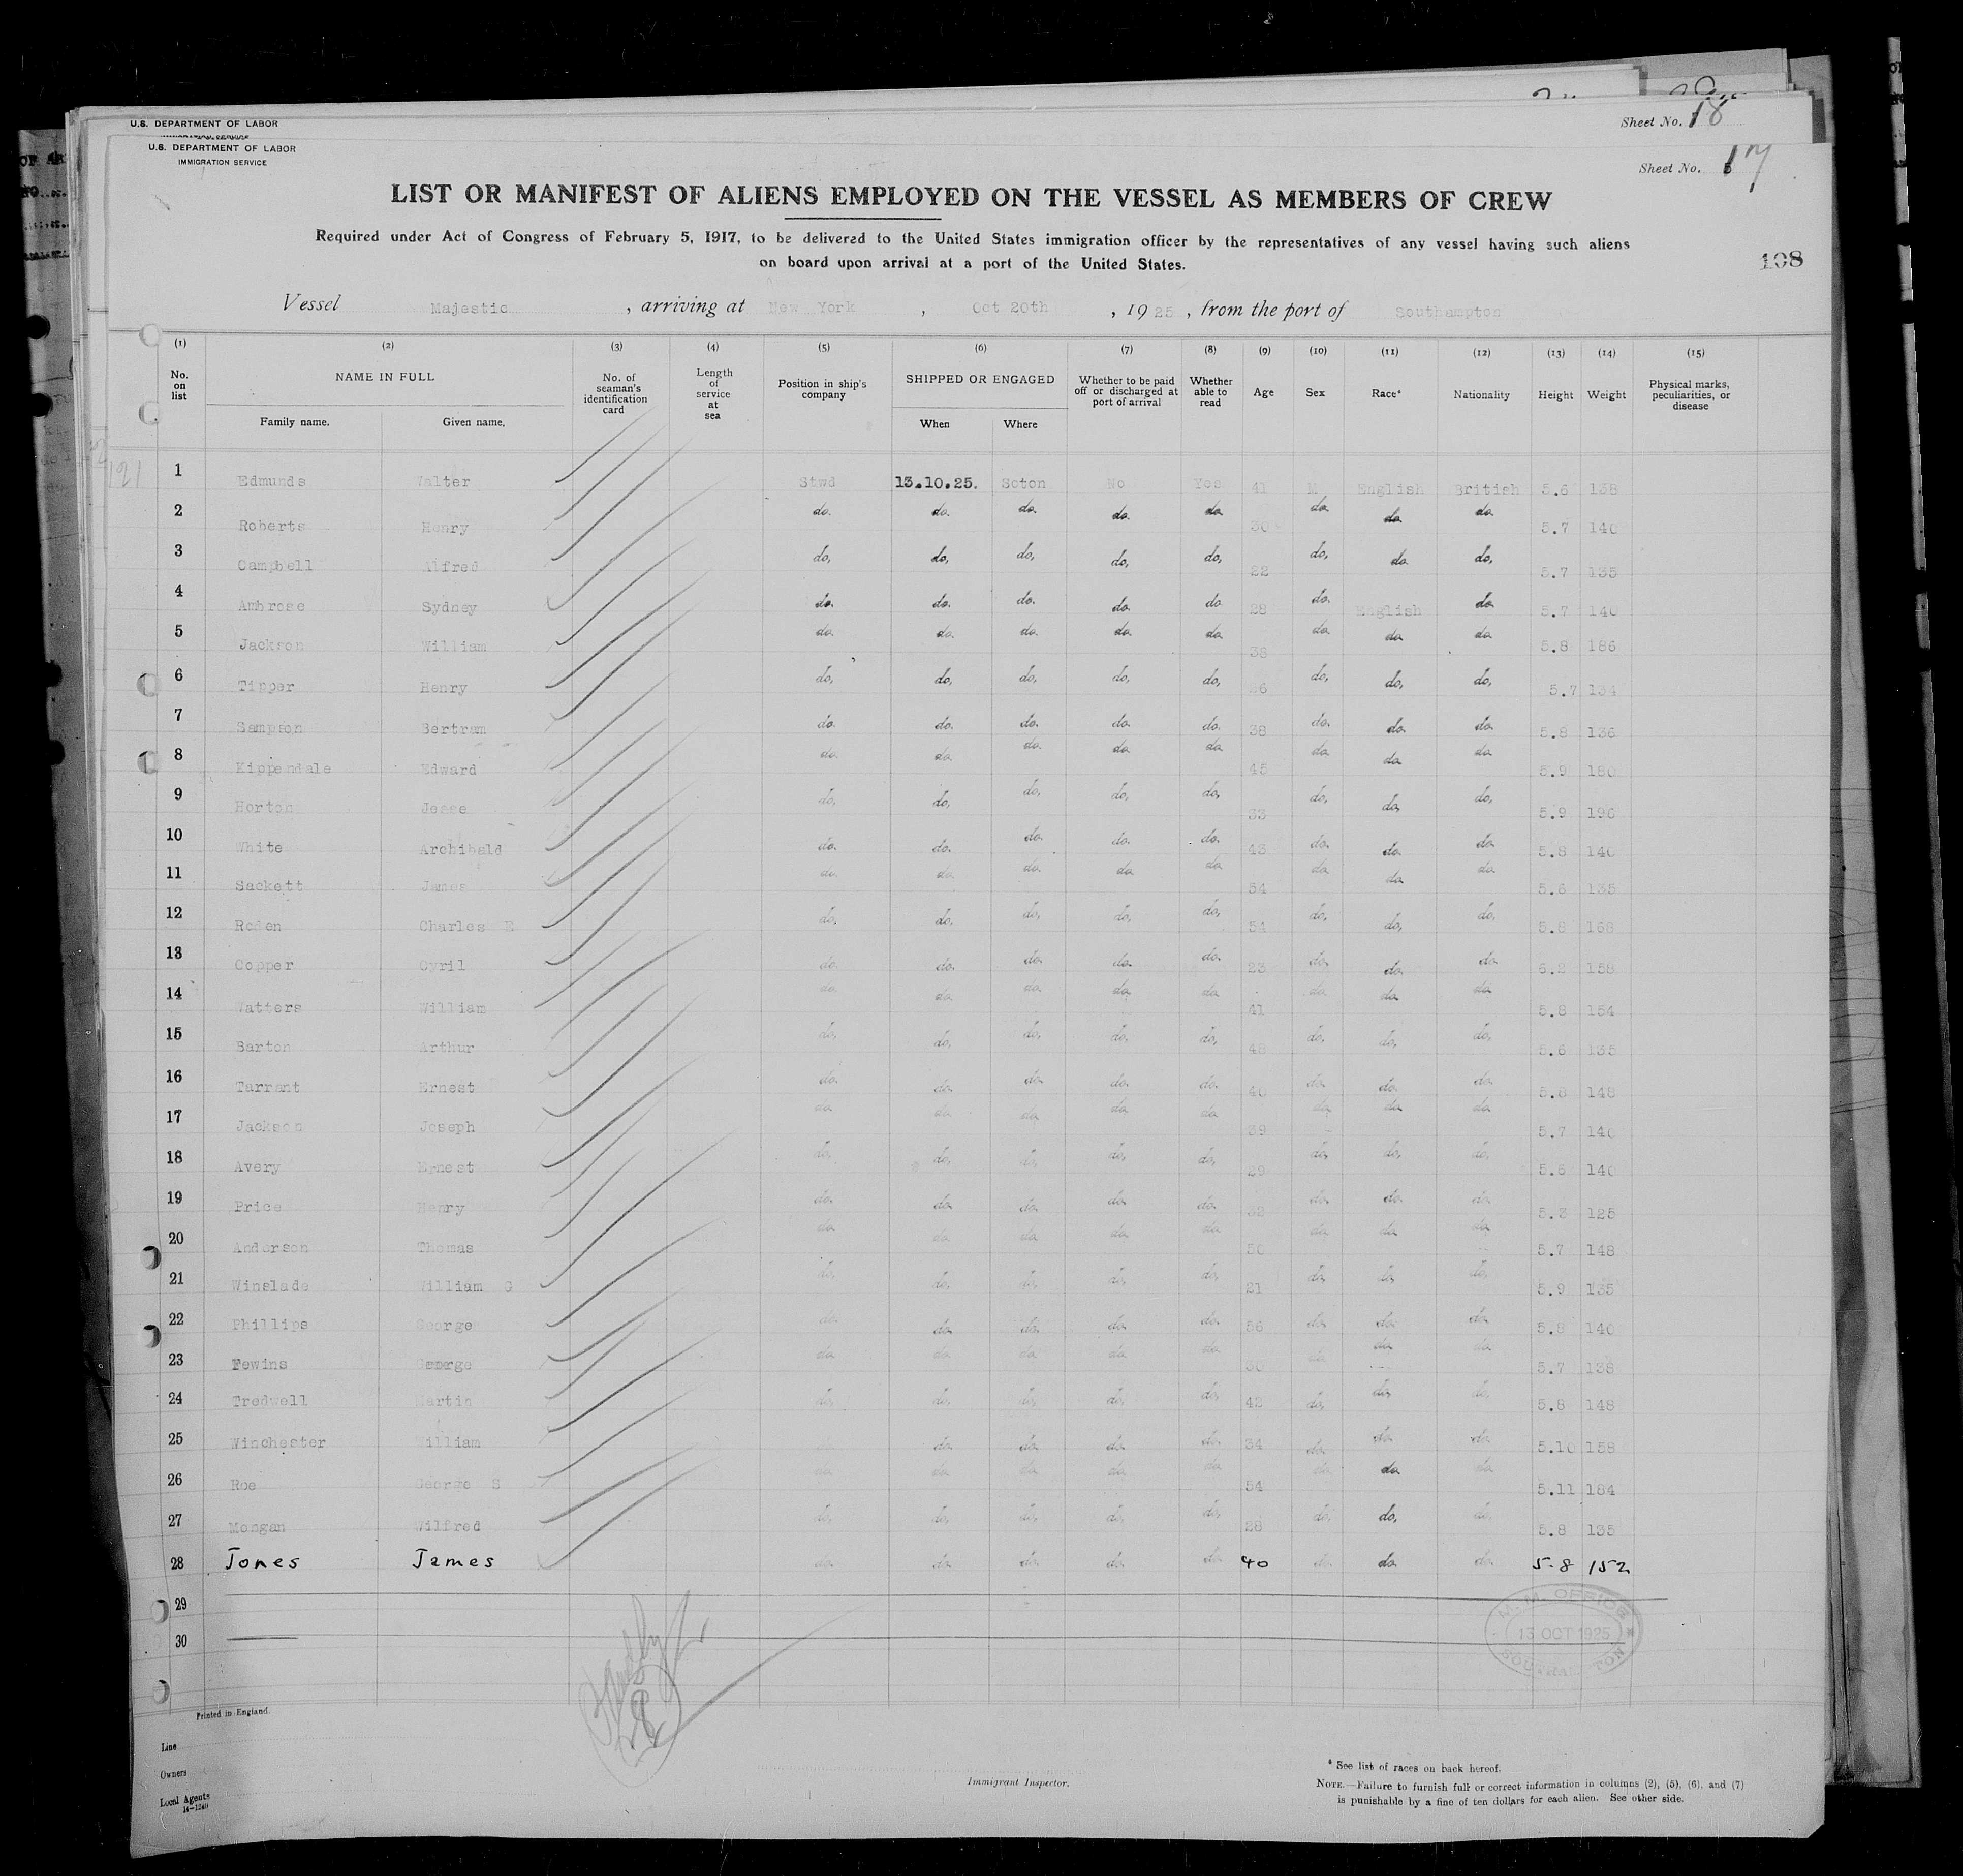 U.S. DEPARTMENT OF LABOR
Sheet No. 18
U.S. DEPARTMENT OF LABOR
IMMIGRATION SERVICE
Sheet No. 17
LIST OR MANIFEST OF ALIENS EMPLOYED ON THE VESSEL AS MEMBERS OF CREW
Required under Act of Congress of February 5, 1917, to be delivered to the United States immigration officer by the representatives of any vessel having such aliens
on board upon arrival at a port of the United States.
108
Vessel Majestic , arriving at New York , Oct 20th , 1925 , from the port of Southampton
(1) (2) (3) (4) (5) (6) (7) (8) (9) (10) (11) (12) (13) (14) (15)
No. on list NAME IN FULL Family name. Given name. No. of seaman's identification card Length of service at sea Position in ship's company SHIPPED OR ENGAGED When Where Whether to be paid off or discharged at port of arrival Whether able to read Age Sex Race* Nationality Height Weight Physical marks, peculiarities, or disease
1 Edmunds Walter Stwd 13.10.25. Soton No Yes 41 M English British 5.6 138
2 Roberts Henry do. do. do. do. do 30 do. do. do. 5.7 140
3 Campbell Alfred do, do, do, do, do, 22 do, do. do, 5.7 135
4 Ambrose Sydney do. do. do. do. do 28 do. English do. 5.7 140
5 Jackson William do. do. do. do. do. 38 do. do. do. 5.8 186
6 Tipper Henry do, do, do, do, do, 6 do, do, do, 5.7 134
7 Sampson Bertram do. do. do. do. do. 38 do. do. do. 5.8 136
8 Kippendale Edward do. do. do. do. do. 45 do. do. do. 5.9 180
9 Horton Jesse do, do, do, do, do, 33 do, do, do, 5.9 196
10 White Archibald do. do. do. do. do. 43 do. do. do. 5.8 140
11 Sackett James do. do. do. do. do. 54 do. do. do. 5.6 135
12 Roden Charles E do. do, do, do, do, 54 do, do, do, 5.8 168
13 Copper Cyril do. do. do. do. do. 23 do. do. do. 6.2 158
14 Watters William do. do. do. do. do. 41 do. do. do. 5.8 154
15 Barton Arthur do, do, do, do, do, 48 do, do, do, 5.6 135
16 Tarrant Ernest do. do. do. do. do. 40 do. do. do. 5.8 148
17 Jackson Joseph do. do. do. do. do. 39 do. do. do. 5.7 140
18 Avery Ernest do, do, do, do, do, 29 do, do, do, 5.8 140
19 Price Henry do. do. do. do. do. do. do. do. 5.3 125
20 Anderson Thomas do. do. do. do. do. 50 do. do. do. 5.7 148
21 Winslade William G do, do, do, do, do, 21 do, do, do, 5.9 135
22 Phillips George do. do. do. do. do. 56 do. do. do. 5.8 140
23 Fewins George do. do. do. do. do. 30 do. do. do. 5.7 138
24 Tredwell Martin do, do, do, do, do, 42 do, do, do, 5.8 148
25 Winchester William do. do. do. do. 34 do. do. do. 5.10 158
26 Roe George S do. do. do. do. do. 54 do. do. do. 5.11 184
27 Mongan Wilfred do, do, do, do, do, 28 do, do, do, 5.8 135
28 Jones James do. do. do. do. do. 40 do. do. do. 5-8 152
29
30
M. M. OFFICE
13 OCT 1925
SOUTHAMPTON
Printed in England.
Line
Owners
Local Agents
14-1240
Immigrant Inspector.
* See list of races on back hereof.
NOTE.—Failure to furnish full or correct information in columns (2), (5), (6), and (7)
is punishable by a fine of ten dollars for each alien. See other side.